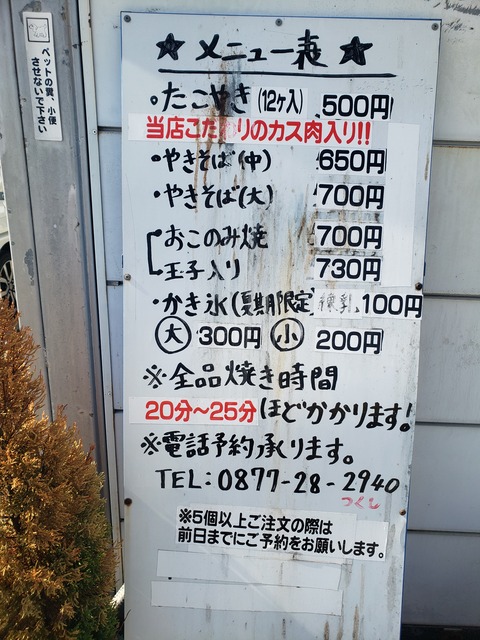 ペットの糞、小便
させないで下さい
★ メニュー表 ★
・たこやき(12ヶ入) 500円
当店こだわりのカス肉入り!!
・やきそば(中) 650円
・やきそば(大) 700円
おこのみ焼 700円
玉子入り 730円
・かき氷(夏期限定) 練乳 100円
大 300円 小 200円
※全品焼き時間
20分〜25分ほどかかります!
※電話予約承ります。
TEL:0877-28-2940
つくし
※5個以上ご注文の際は
前日までにご予約をお願いします。